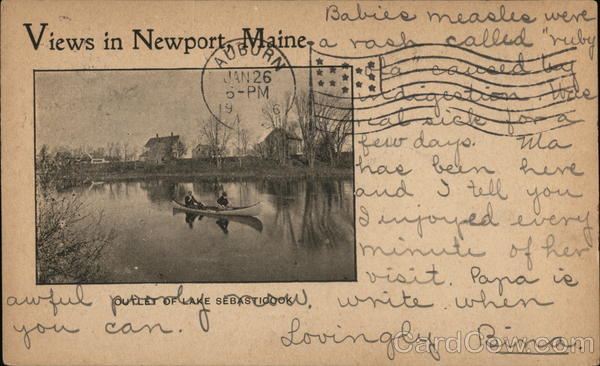 Views in Newport, Maine.
AUBURN
JAN 26
6-PM
19 6
Babies measles were
a rash called "ruby
" caused by
indigestion. Was
real sick for a
few days. Ma
has been here
and I tell you
I enjoyed every
minute of her
visit. Papa is
awful now, write when
you can. Lovingly Bina.
OUTLET OF LAKE SEBASTICOOK
CardCow.com